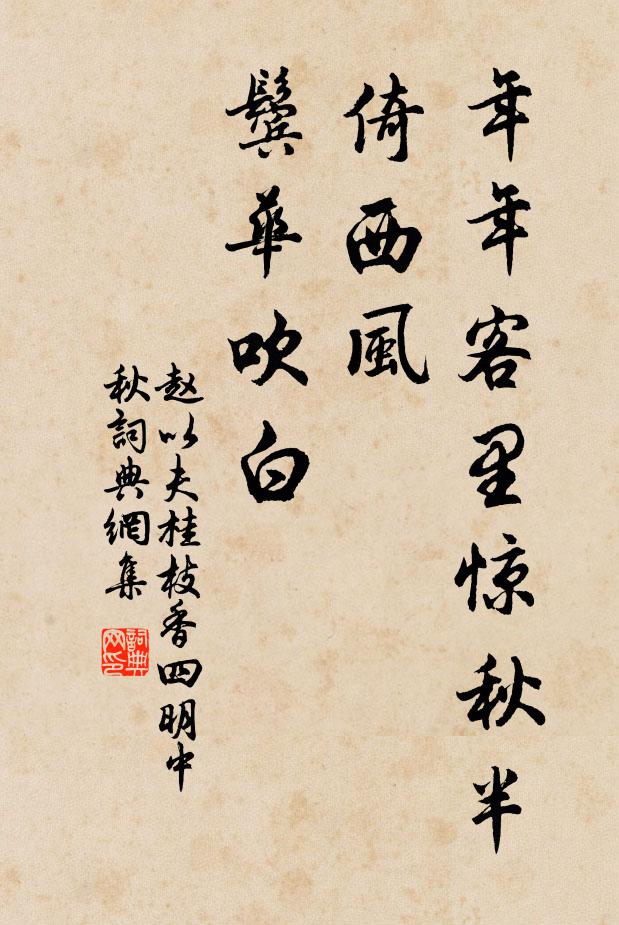 年年客里惊秋半
倚西風
鬓華吹白
赵以夫桂枝香四明中
秋詞典網集
詞典
网印